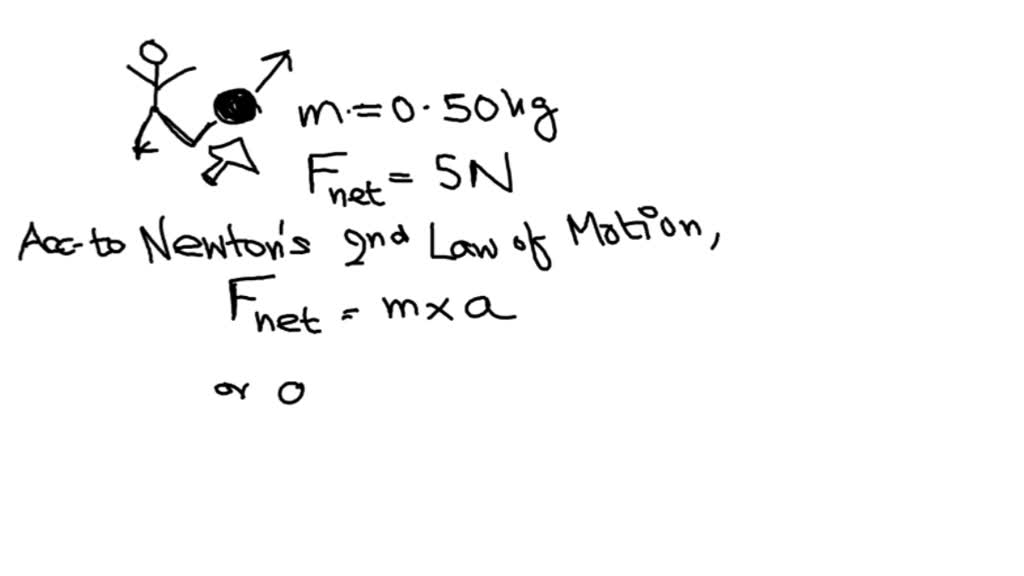 m.=0.50kg
Fnet = 5N
Acc-to Newton's 2nd Law of Motion,
Fnet = m×a
or 0